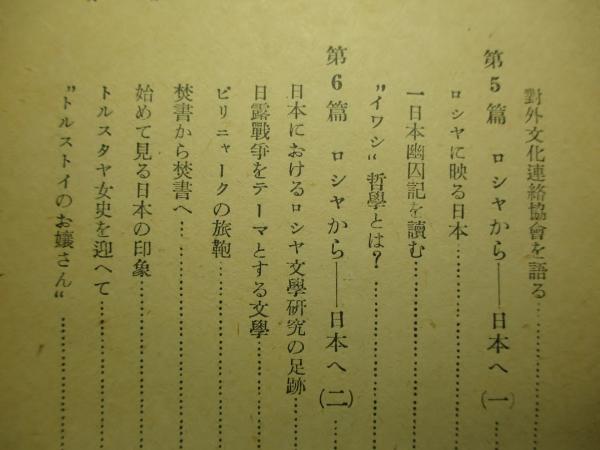 對外文化連絡協會を語る…………
第5篇 ロシヤから――日本へ(一)
ロシヤに映る日本…………
一日本幽囚記を讀む…………
〃イワシ〃哲學とは?…………
第6篇 ロシヤから――日本へ(二)
日本におけるロシヤ文學研究の足跡…………
日露戰爭をテーマとする文學…………
ピリニャークの旅鞄…………
焚書から焚書へ…………
始めて見る日本の印象…………
トルスタヤ女史を迎へて…………
〃トルストイのお孃さん〃…………